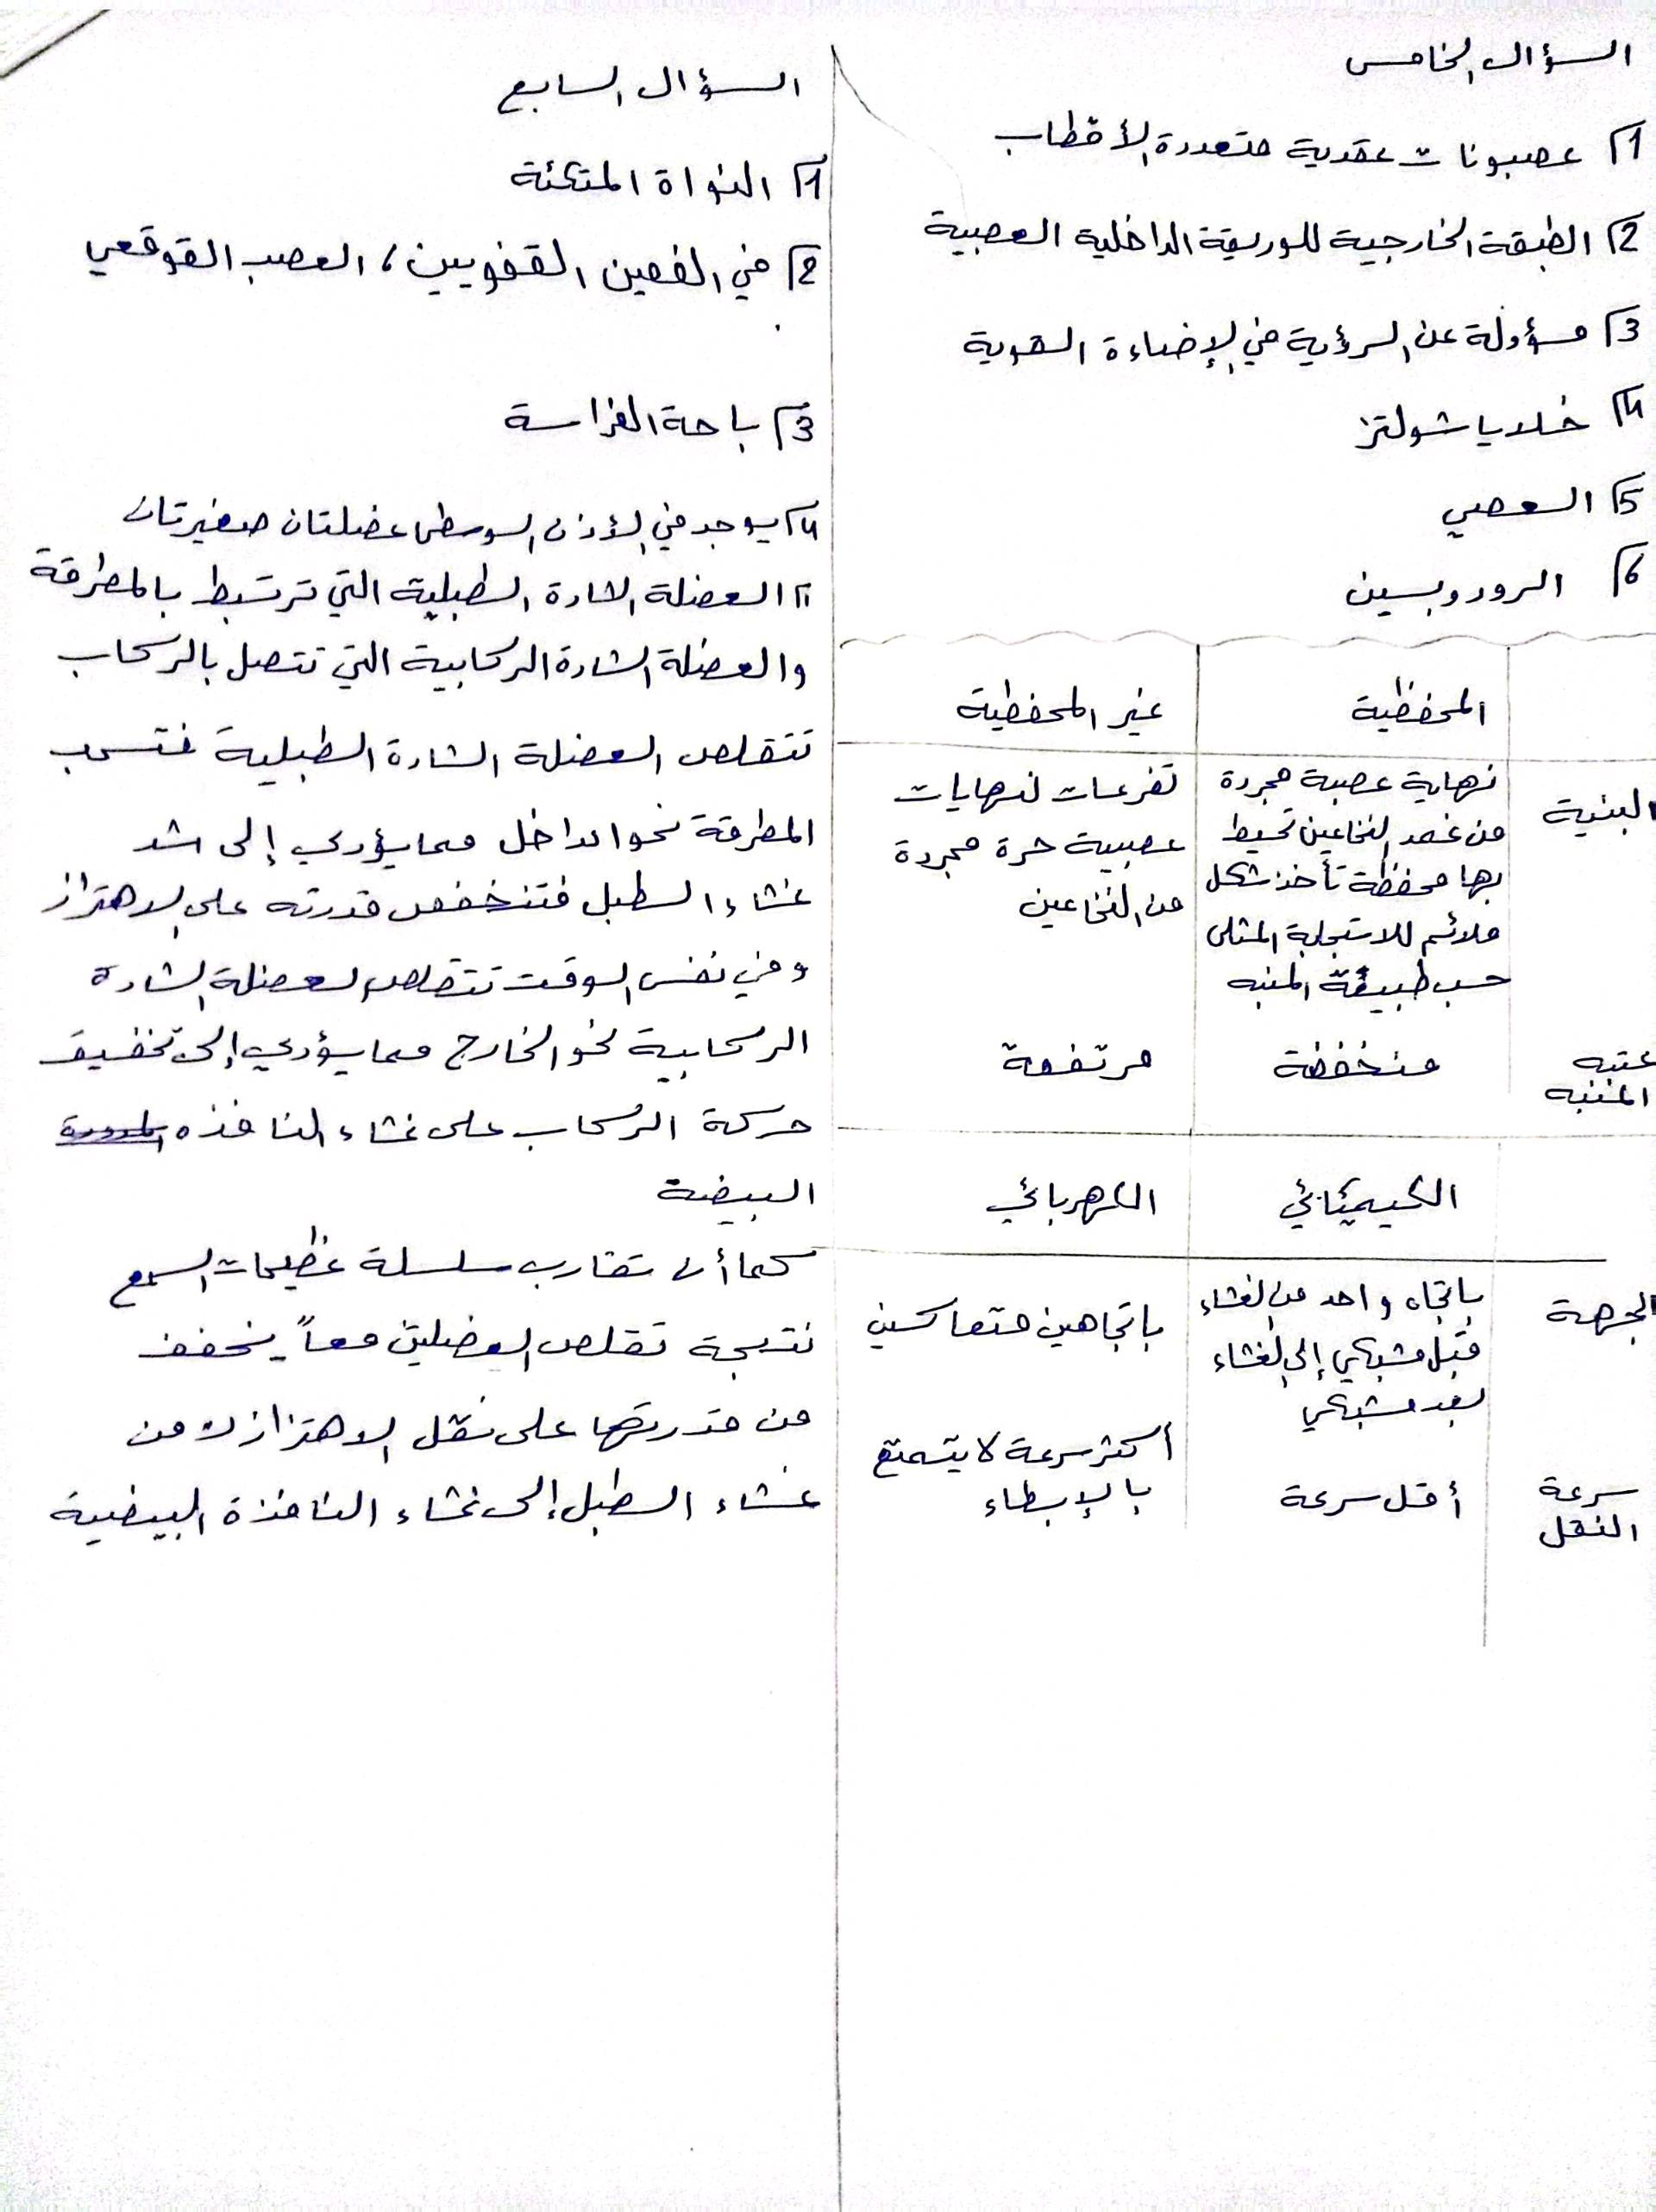 السؤال الخامس
1) عصبونات عقدية متعددة الأقطاب
2) الطبقة الخارجية للوريقة الداخلية العصبية
3) مسؤولة عن الرؤية في الإضاءة القوية
4) خلايا شولتز
5) العصي
6) الرودوبسين
المحفظية غير المحفظية
البنية
نهاية عصبية مجردة
من غمد النخاعين تحيط
بها محفظة تأخذ شكل
ملائم للاستجابة المثلى
حسب طبيعة المنبه
تفرعات لنهايات
عصبية حرة مجردة
من النخاعين
عتبه
المنبه
منخفضة مرتفعة
الكيميائي الكهربائي
الجهة
باتجاه واحد من الغشاء
قبل مشبكي إلى الغشاء
بعد مشبكي
باتجاهين متعاكسين
سرعة
النقل
أقل سرعة
أكثر سرعة لا يتمتع
بالإبطاء
السؤال السابع
1) النواة المتكئة
2) في الفصين القفويين، العصب القوقعي
3) باحة الفراسة
4) يوجد في الأذن الوسطى عضلتان صغيرتان
العضلة الشادة الطبلية التي ترتبط بالمطرقة
والعضلة الشادة الركابية التي تتصل بالركاب
تتقلص العضلة الشادة الطبلية فتسحب
المطرقة نحو الداخل مما يؤدي إلى شد
غشاء الطبل فتنخفض قدرته على الاهتزاز
وفي نفس الوقت تتقلص العضلة الشادة
الركابية نحو الخارج مما يؤدي إلى تخفيف
حركة الركاب على غشاء النافذه
البيضية
كما أن تقارب سلسلة عظيمات السمع
نتيجة تقلص العضلتين معاً يخفف
من قدرتها على نقل الاهتزازات من
غشاء الطبل إلى غشاء النافذة البيضية